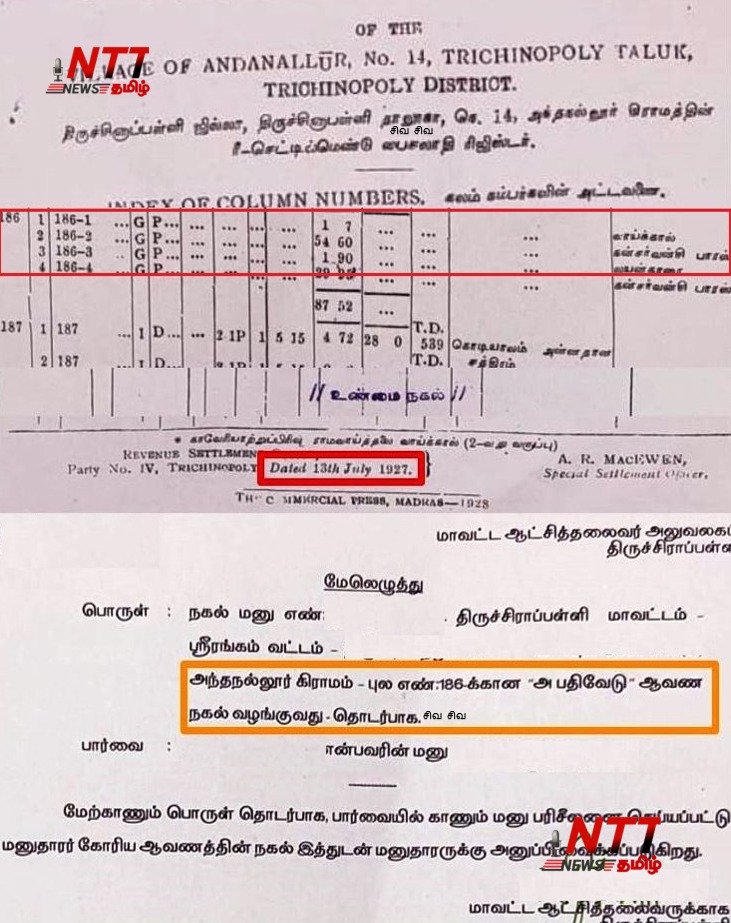 OF THE
NTT
NEWS தமிழ்
VILLAGE OF ANDANALLŪR, No. 14, TRICHINOPOLY TALUK,
TRICHINOPOLY DISTRICT.
திருச்சிளுப்பள்ளி ஜில்லா, திருச்சிளுபள்ளி தாலூகா, செ. 14, அந்தகல்லூர் கிராமத்தின்
சிவ சிவ
ரீ-செட்டில்மெண்டு பைசலாதி ரிஜிஸ்டர்.
INDEX OF COLUMN NUMBERS. கலம் கம்பர்களின் அட்டவணை.
186 1 186-1 ... G P... ... ... ... 1 7 ... ... ... வாய்க்கால்
2 186-2 ... G P... ... ... ... 54 60 ... ... ... கன்சர்வன்சி பாரஸ்
3 186-3 .. G P... ... ... ... 1 90 ... ... ...
4 186-4 ... G P... ... ... ... ... ... ... கன்சர்வன்சி பாரஸ்
87 52 ...
187 1 187 ... 1 D... ... 2 1P 1 5 15 4 72 28 0 T.D. 539 கொடியாலம் அன்னதான
2 187 T.D. சத்திரம்
// உண்மை நகல் //
* காவேரியாற்றுப்பிரிவு ராமவாய்த்தலை வாய்க்கால் (2-வது வகுப்பு)
REVENUE SETTLEMENT
Party No. IV, TRICHINOPOLY Dated 13th July 1927. }
A. R. MACEWEN,
Special Settlement Officer,
THE COMMERCIAL PRESS, MADRAS—1928
மாவட்ட ஆட்சித்தலைவர் அலுவலகம்
திருச்சிராப்பள்ளி
மேலெழுத்து
பொருள் : நகல் மனு எண்: . திருச்சிராப்பள்ளி மாவட்டம் -
ஸ்ரீரங்கம் வட்டம் -
அந்தநல்லூர் கிராமம் - புல எண்:186-க்கான "அ பதிவேடு" ஆவண
நகல் வழங்குவது - தொடர்பாக. சிவ சிவ
பார்வை : என்பவரின் மனு
மேற்காணும் பொருள் தொடர்பாக, பார்வையில் காணும் மனு பரிசீலனை செய்யப்பட்டு
மனுதாரர் கோரிய ஆவணத்தின் நகல் இத்துடன் மனுதாரருக்கு அனுப்பிவைக்கப்படுகிறது.
NTT
NEWS தமிழ்
மாவட்ட ஆட்சித்தலைவருக்காக